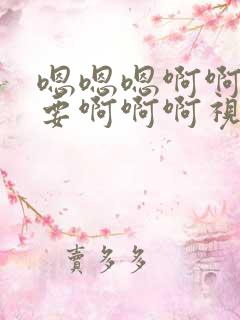 嗯嗯嗯啊啊
要啊啊啊視
賣多多